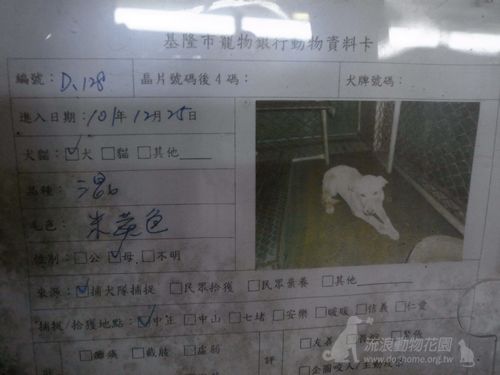 基隆市寵物銀行動物資料卡
編號：D、128 晶片號碼後4碼： 犬牌號碼：
進入日期：101年12月25日
犬貓：☑犬 □貓 □其他
品種：混
毛色：米黃色
性別：□公 ☑母 □不明
來源：☑捕犬隊捕捉 □民眾拾獲 □民眾棄養 □其他
捕捉/拾獲地點：☑中正 □中山 □七堵 □安樂 □暖暖 □信義 □仁愛
□癱瘓 □截肢 □虛弱 □友善
評 □會圍咬人/主動攻擊
流浪動物花園
www.doghome.org.tw